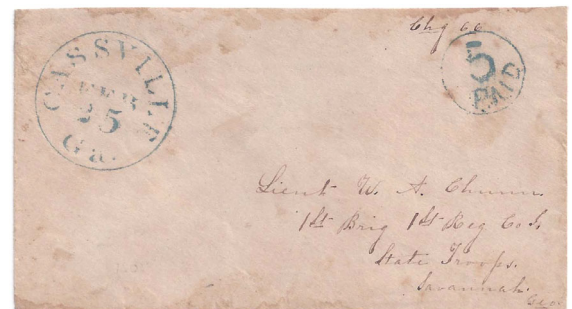 Chg 66
CASSVILLE
FEB
25
Ga.
5
PAID
Lieut W. A. Chunn
1st Brig 1st Reg Co
State Troops.
Savannah.
Geo